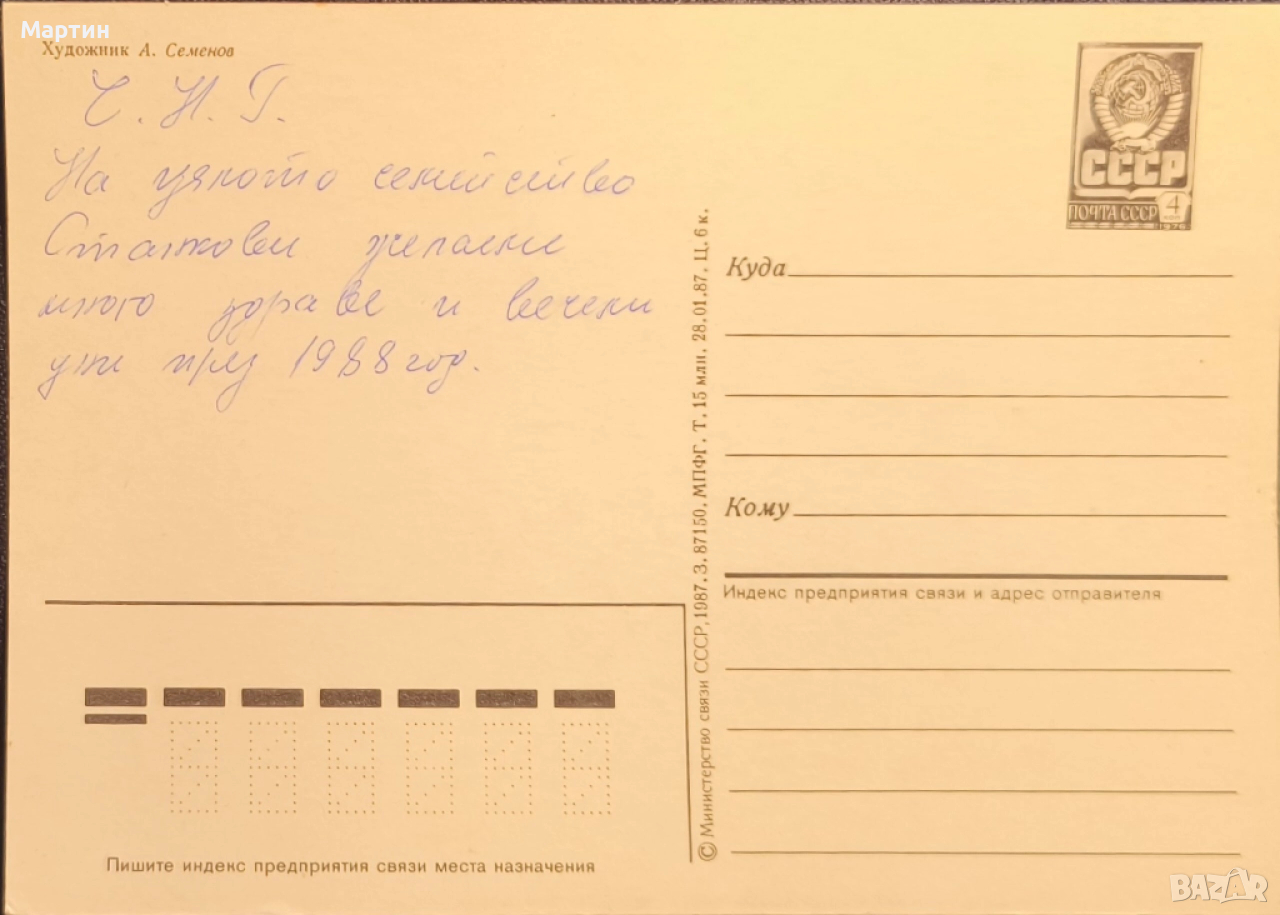 Мартин
Художник А. Семенов
Ч. Н. Г.
На цялото семейство
Станкови желаем
много здраве и
през 1988 год.
СССР
ПОЧТА СССР 4
1976
Куда
Кому
Индекс предприятия связи и адрес отправителя
© Министерство связи СССР, 1987. З. 87150. МПФГ. Т. 15 млн. 28.01.87. Ц. 6 к.
Пишите индекс предприятия связи места назначения
BAZAR